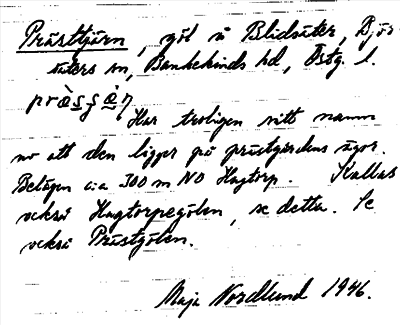 Prästtjärn, göl i Blidsäter, Björ
säters sn, Bankekinds hd, Östg. l.
præ̀sʂæ̣̀ņ
Har troligen sitt namn
av att den ligger på prästgårdens ägor.
Belägen c:a 300 m NO Hagtorp. Kallas
också Hagtorpegölen, se detta. Se
också Prästgölen.
Maja Nordlund 1946.